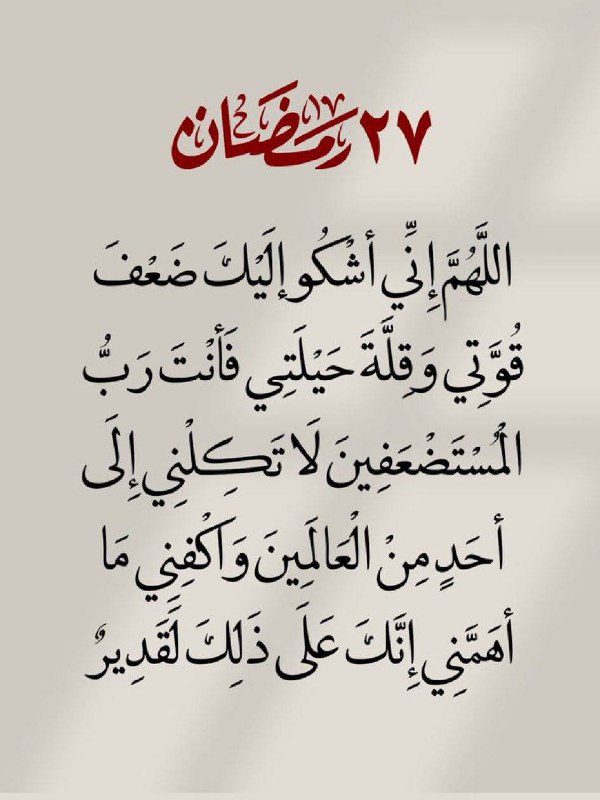 ٢٧ رمضان
اللَّهُمَّ إِنِّي أشْكُو إلَيْكَ ضَعْفَ
قُوَّتِي وَقِلَّةَ حَيْلَتِي فَأنْتَ رَبُّ
الْمُسْتَضْعَفِينَ لَا تَكِلْنِي إِلَى
أحَدٍ مِنْ الْعَالَمِينَ وَاكْفِنِي مَا
أهَمَّنِي إِنَّكَ عَلَى ذَلِكَ لَقَدِيرٌ